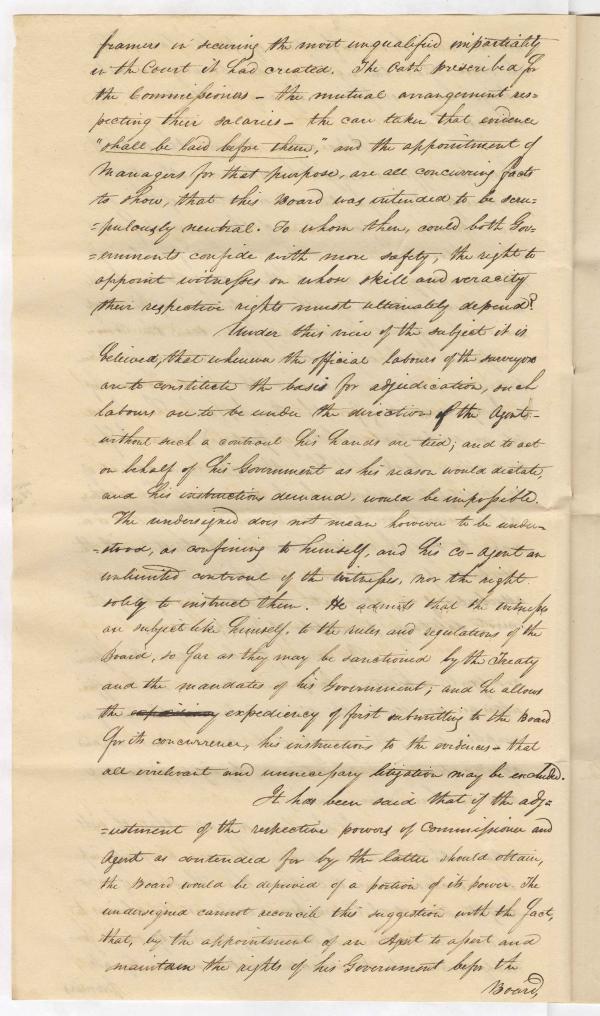 framers in securing the most unqualified impartiality
in the Court it had created. The Oath prescribed for
the Commissioners – the mutual arrangement res-
pecting their salaries – the care taken that evidence
"shall be laid before them," and the appointment of
Managers for that purpose, are all concurring facts
to show, that this Board was intended to be scru-
=pulously neutral. To whom then, could both Gov-
=ernments confide with more safety, the right to
appoint witnesses on whose skill and veracity
their respective rights must ultimately depend?
Under this view of the subject it is
believed, that whenever the official labours of the surveyors
are to constitute the basis for adjudication, such
labours are to be under the direction of the Agents –
without such a controul his hands are tied; and to act
on behalf of his Government as his reason would dictate,
and his instructions demand, would be impossible.
The undersigned does not mean however to be under-
-stood, as confining to himself, and his co-agent an
unlimited controul of the witnesses, nor the right
solely to instruct them. He admits that the witnesses
are subject like himself, to the rules and regulations of the
Board, so far as they may be sanctioned by the Treaty
and the mandates of his Government; and he allows
the expediency of first submitting to the Board
for its concurrence, his instructions to the evidences – that
all irrelevant and unnecessary litigation may be excluded.
It has been said that if the adj=
=ustment of the respective powers of Commissioner and
Agent as contended for by the latter should obtain,
the Board would be deprived of a portion of its power. The
undersigned cannot reconcile this suggestion with the fact,
that, by the appointment of an Agent to assert and
maintain the rights of his Government before the
Board,